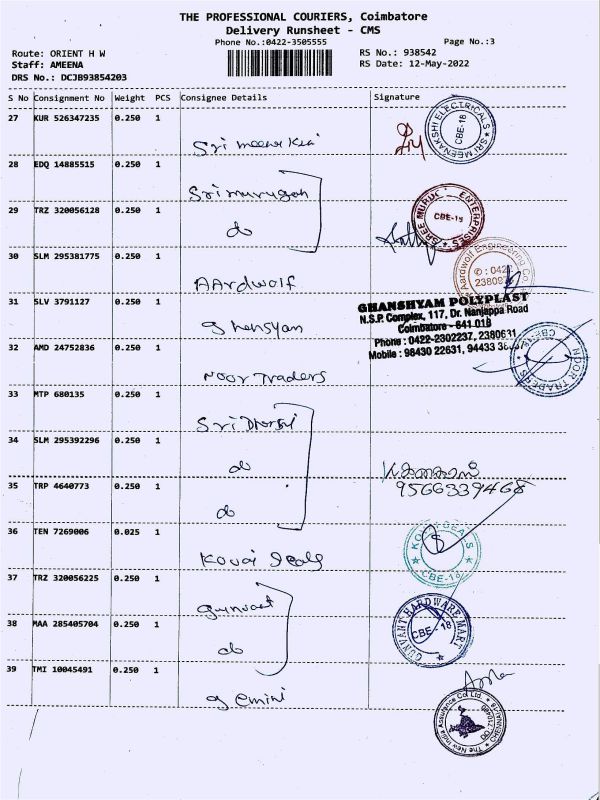 THE PROFESSIONAL COURIERS, Coimbatore
Delivery Runsheet - CMS
Phone No.:0422-3505555
Page No.:3
Route: ORIENT H W
RS No.: 938542
Staff: AMEENA
RS Date: 12-May-2022
DRS No.: DCJB93854203
S No Consignment No Weight PCS Consignee Details Signature
27 KUR 526347235 0.250 1
Sri meenakshi
SRI MEENAKSHI ELECTRICALS CBE-18
28 EDQ 14885515 0.250 1
Sri murugan
29 TRZ 320056128 0.250 1
do
SREE ENTERPRISES CBE-18
30 SLM 295381775 0.250 1
AArdwolf
Aardwolf Engineering Co
✆ : 0422
31 SLV 3791127 0.250 1
ghensyan
GHANSHYAM POLYPLAST
N.S.P. Complex, 117, Dr. Nanjappa Road
Coimbatore - 641 018
Phone : 0422-2302237, 2380631
Mobile : 98430 22631, 94433
32 AMD 24752836 0.250 1
Noor Traders
NOOR TRADERS CBE-18
33 MTP 680135 0.250 1
Sri
34 SLM 295392296 0.250 1
do
35 TRP 4640773 0.250 1
do
9566339468
36 TEN 7269006 0.025 1
Kovai Seals
KOVAI SEALS CBE-18
37 TRZ 320056225 0.250 1
gunvant
38 MAA 285405704 0.250 1
do
GUNVANT HARDWARE MART CBE-18
39 TMI 10045491 0.250 1
gemini
The New India Assurance Co Ltd.